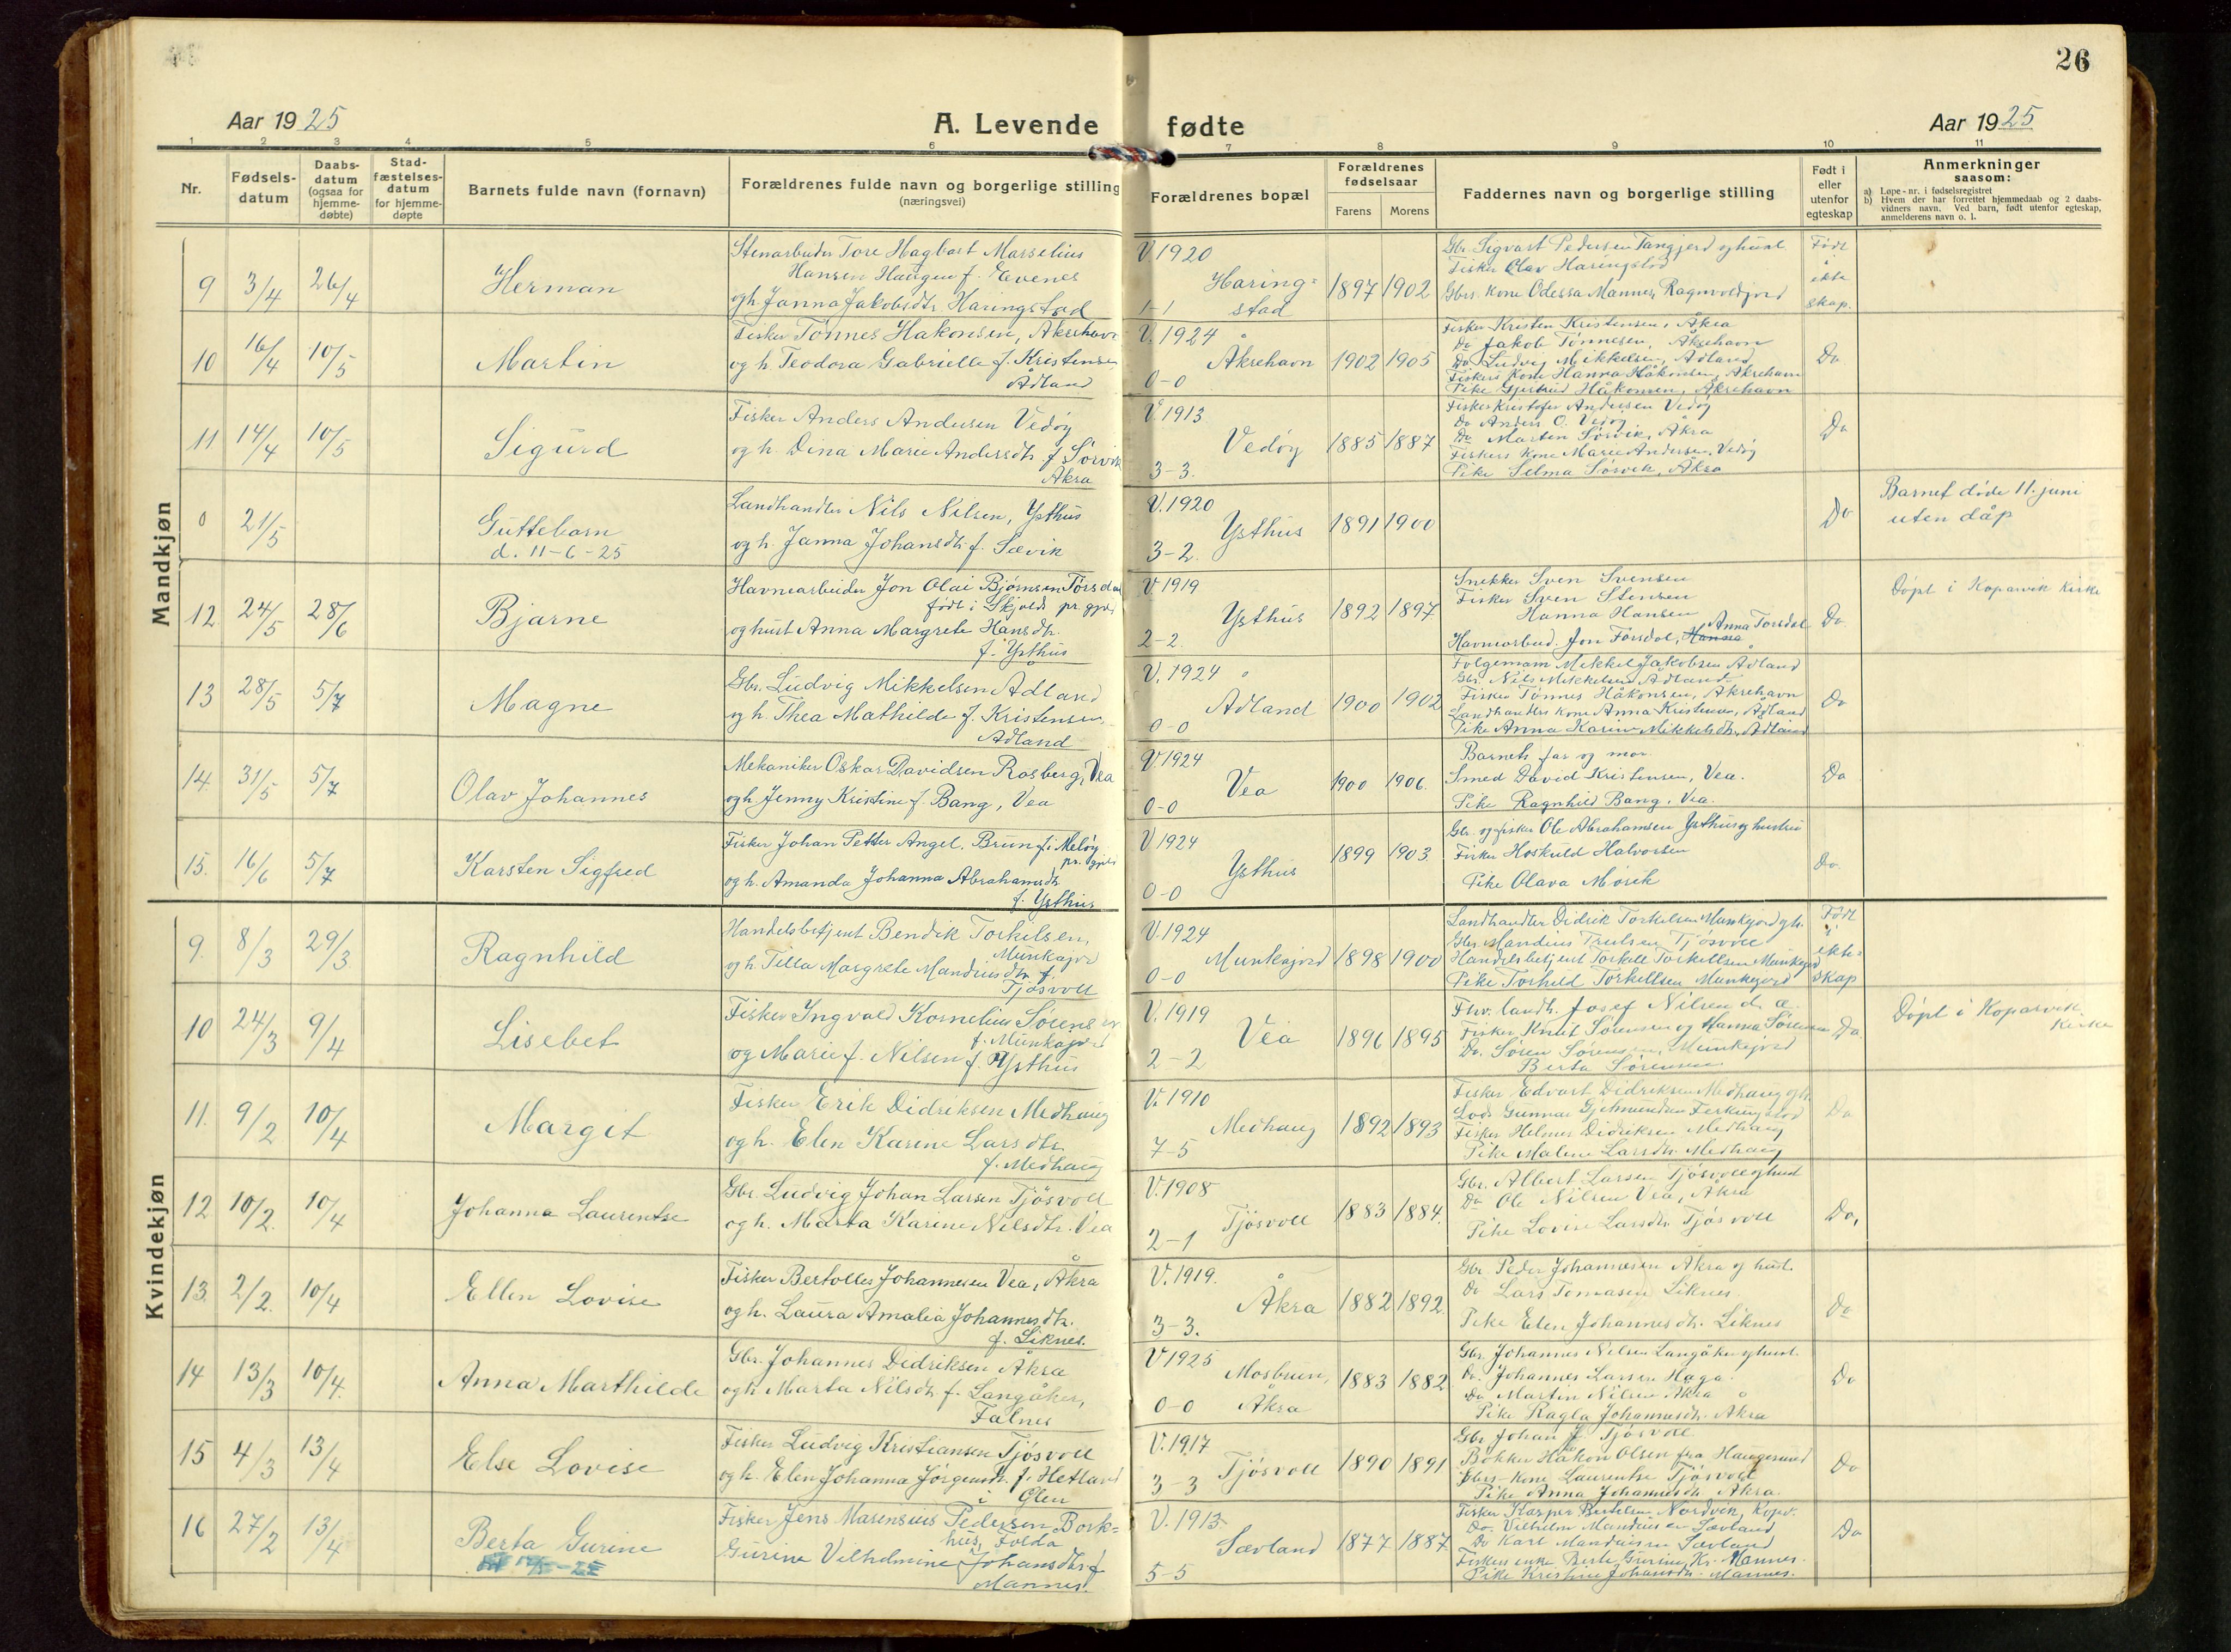 26
Aar 1925
A. Levende fødte
Aar 1925
1 2 3 4 5 6 7 8 9 10 11
Nr.
Fødsels-
datum
Daabs-
datum
(ogsaa for
hjemme-
døbte)
Stad-
fæstelses-
datum
for hjemme-
døpte
Barnets fulde navn (fornavn)
Forældrenes fulde navn og borgerlige stilling
(næringsvei)
Forældrenes bopæl
Forældrenes
fødselsaar
Farens Morens
Faddernes navn og borgerlige stilling
Født i
eller
utenfor
egteskap
Anmerkninger
saasom:
a) Løpe-nr. i fødselsregistret
b) Hvem der har forrettet hjemmedaab og 2 daabs-
vidners navn. Ved barn, født utenfor egteskap,
anmelderens navn o. l.
Mandkjøn
9 3/4 26/4 Herman
Stenarbeider Tore Hagbart Marselius
Hansen Haugen f. Evenes
og h. Janna Jakobsdtr. Haringstad
V 1920
Haring=
stad
1-1
1897 1902
Gbr. Sigvart Pedersen Tangjerd og hust.
Fisker Olav Haringstad
Gbrs. kone Odessa Mannes, Ragnvoldjord
Født
i
ekte
skap.
10 16/4 10/5 Martin
Fisker Tönnes Håkonsen, Åkrehavn
og h. Teodora Gabrielle f. Kristensen
Ådland
V. 1924
Åkrehavn
0-0
1902 1905
Fisker Kristen Kristensen, Åkra
Do Jakob Tönnesen, Åkrehavn
Do Ludvig Mikkelsen, Ådland
Fiskers kone Hanna Håkonsen, Åkrehavn
Pike Gjertrud Håkonsen, Åkrehavn
Do
11 14/4 10/5 Sigurd
Fisker Anders Andersen Vedöy
og h. Dina Marie Andersdtr. f. Sörvik
Åkra
V. 1913
Vedöy
3-3.
1885 1887
Fisker Kristofer Andersen Vedöy
Do Anders O. Vedöy
Do Marten Sörvik, Åkra
Fiskers kone Marie Andersen, Vedöy
Pike Selma Sörvik, Åkra
Do
0 21/5 Guttebarn
d. 11-6-25
Landhandler Nils Nilsen, Ysthus
og h. Janna Johansdtr. f. Sævik
V. 1920
Ysthus
3-2.
1891 1900
Do
Barnet döde 11. juni
uten dåp
12 24/5 28/6 Bjarne
Havnearbeider Jon Olai Björnsen Torsdal
födt i Skjold pr. gjeld
og hust Anna Margrete Hansdtr.
f. Ysthus
V 1919
Ysthus
2-2.
1892 1897
Snekker Sven Svensen
Fisker Sven Stensen
Hanna Hansen
Havnearbeid. Jon Torsdal, Anna Torsdal
Do
Döpt i Kopervik Kirke
13 28/5 5/7 Magne
Gbr. Ludvig Mikkelsen Ådland
og h. Thea Mathilde f. Kristensen,
Ådland
V. 1924
Ådland
0-0
1900 1902
Folgemann Mikkel Jakobsen Ådland
Gbr. Nils Mikkelsen Ådland
Fisker Tönnes Håkonsen, Åkrehavn
Landhandlers kone Anna Kristensen, Ådland
Pike Anna Karine Mikkelsdtr. Ådland
Do
14 31/5 5/7 Olav Johannes
Mekaniker Oskar Davidsen Rosberg, Vea
og h. Jenny Kristine f. Bang, Vea
V. 1924
Vea
0-0
1900 1906.
Barnets far og mor
Smed David Kristensen, Vea.
Pike Ragnhild Bang, Vea.
Do
15. 16/6 5/7 Karsten Sigfred
Fisker Johan Petter Angel. Brun f. i Melöy
pr. gjeld
og h. Amanda Johanna Abrahamsdtr.
f. Ysthus
V 1924
Ysthus
0-0
1899 1903
Gbr. og fisker Ole Abrahamsen Ysthus og hustru
Fisker Hoskuld Halvorsen
Pike Olava Morik
Do.
Kvindekjøn
9. 8/3 29/3 Ragnhild
Handelsbetjent Bendik Torkelsen,
Munkajord
og h. Tilla Margrete Mandiusdtr. f.
Tjösvoll
V. 1924
Munkajord
0-0
1898 1900
Landhandler Didrik Torkelsen Munkejord og h.
Gbr. Mandius Trulsen Tjösvoll
Handelsbetjent Torkell Torkellsen Munkejord
Pike Torhild Torkellsen Munkejord
Født
i
ekte=
skap
10 24/3 9/4 Lisebet
Fisker Ingvald Kornelius Sörensen
f. Munkajord
og Marie f. Nilsen f. Ysthus
V. 1919
Vea
2-2
1896 1895
Fhv. landh. Josef Nilsen d. æ.
Fisker Knut Sörensen og Hanna Sörensen
Do. Sören Sörensen, Munkejord
Berta Sörensen
Do
Döpt i Kopervik
Kirke
11. 9/2 10/4 Margit
Fisker Erik Didriksen Medhaug
og h. Elen Karine Larsdtr.
f. Medhaug
V. 1910
Medhaug
7-5
1892 1893
Fisker Edvart Didriksen Medhaug og h.
Lods Gunnar Gjetmundsen Ferkingstad
Fisker Helmer Didriksen Medhaug
Pike Malene Larsdtr. Medhaug
Do
12 10/2. 10/4 Johanna Laurentse
Gbr. Ludvig Johan Larsen Tjösvoll
og h. Marta Karine Nilsdtr. Vea
V. 1908
Tjösvoll
2-1
1883 1884.
Gbr. Albert Larsen Tjösvoll og hust
Do Ole Nilsen Vea, Åkra
Pike Lovise Larsdtr. Tjösvoll
Do,
13. 2/2. 10/4 Ellen Lovise
Fisker Bertolles Johannesen Vea, Åkra
og h. Laura Amalia Johannesdtr.
f. Liknes.
V. 1919.
Åkra
3-3.
1882 1892.
Gbr. Peder Johannesen Åkra og hust.
Do Lars Tomasen Liknes.
Pike Elen Johannesdtr. Liknes
Do
14 13/3 10/4. Anna Marthilde
Gbr. Johannes Didriksen Åkra
og h. Marta Nilsdtr. f. Langåker,
Falnes
V 1925
Mosbrun,
0-0 Åkra
1883 1882
Gbr. Johannes Nilsen Langåker og hust.
Do. Johannes Larsen Haga.
Do Martin Nilsen Åkra
Pike Ragla Johannesdtr. Åkra
Do
15 4/3 13/4 Else Lovise
Fisker Ludvig Kristiansen Tjösvoll
og h. Elen Johanna Jörgensdtr. f. Hetland
i Ølen
V. 1917
3-3 Tjösvoll
1890 1891
Gbr Johan J. Tjösvoll
Bökker Håkon Olsen fra Haugesund
Gbrs-kone Laurentse Tjösvoll
Pike Anna Johannesdtr. Åkra.
Do
16 27/2 13/4 Berta Gurine
Fisker Jens Marensius Pedersen Bork=
hus, Folda
Gurine Vilhelmine Johansdtr. f
Mannes.
V. 1913
Sævland
5-5
1877 1887
Fisker Kasper Bertelsen Nordvik, Kopv.
Do. Vilhelm Mandiusen Sævland
Do Karl Mandiusen Sævland
Fiskers enke Berte Gurine Kr. Mannes.
Pike Kristine Johansdtr. Mannes.
Do